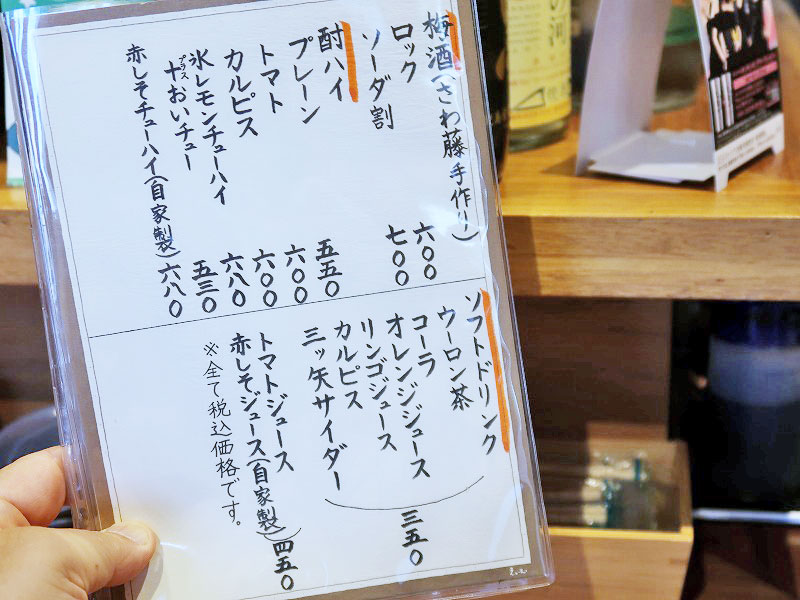 梅酒(さわ藤手作り)
ロック 六〇〇
ソーダ割 七〇〇
酎ハイ
プレーン 五五〇
トマト 六〇〇
カルピス 六〇〇
氷レモンチューハイ 六八〇
プラス
十おいチュー 五三〇
赤しそチューハイ(自家製) 六八〇
ソフトドリンク
ウーロン茶
コーラ
オレンジジュース
リンゴジュース
カルピス
三ッ矢サイダー
三五〇
トマトジュース
赤しそジュース(自家製) 四五〇
※全て税込価格です。
の河